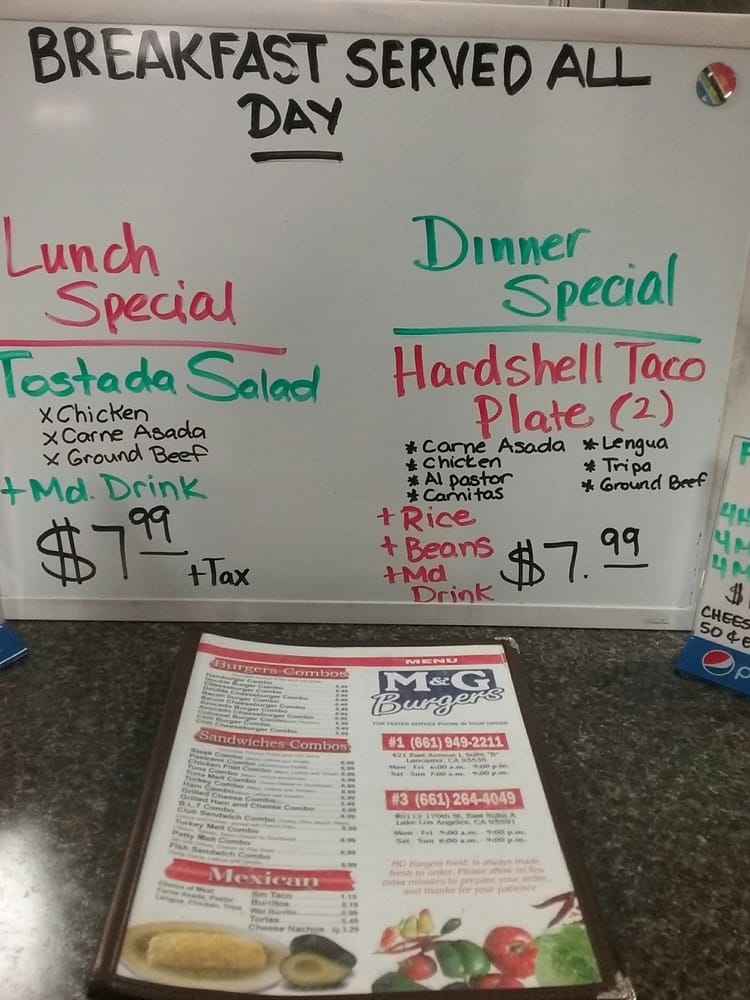 BREAKFAST SERVED ALL
DAY
Lunch
Special
Tostada Salad
x Chicken
x Carne Asada
x Ground Beef
+ Md. Drink
$7 99
+Tax
Dinner
Special
Hardshell Taco
Plate (2)
* Carne Asada
* Chicken
* Al pastor
* Carnitas
* Lengua
* Tripa
* Ground Beef
+ Rice
+ Beans
+ Md
Drink
$7. 99
CHEES
50¢
Burgers Combos
Hamburger Combo
Double Burger Combo
Cheeseburger Combo
Double Cheeseburger Combo
Bacon burger Combo
Bacon Cheeseburger Combo
Avocado Burger Combo
Avocado Cheeseburger Combo
Colossal Burger Combo
Chili Burger Combo
Chili Cheeseburger Combo
Sandwiches Combos
Steak Combo
Pastrami Combo
Chicken Filet Combo
Tuna Combo
Tuna Melt Combo
Turkey Combo
Ham Combo
Grilled Cheese Combo
Grilled Ham and Cheese Combo
B.L.T Combo
Club Sandwich Combo
Turkey Melt Combo
Patty Melt Combo
Fish Sandwich Combo
Mexican
Choice of Meat
Carne Asada, Pastor
Lengua, Chicken, Tripa
Sm Taco 1.15
Burritos 6.19
Wet Burrito 6.99
Tortas 6.49
Cheese Nachos lg 3.29
MENU
M&G
Burgers
FOR FASTER SERVICE PHONE IN YOUR ORDER
#1 (661) 949-2211
421 East Avenue I, Suite "B"
Lancaster, CA 93535
Mon Fri 6:00 a.m. - 9:00 p.m.
Sat Sun 7:00 a.m. - 9:00 p.m.
#3 (661) 264-4049
40112 170th St. East Suite A
Lake Los Angeles, CA 93591
Mon Fri 9:00 a.m. - 9:00 p.m.
Sat Sun 8:00 a.m. - 9:00 p.m.
MG Burgers food, is always made
fresh to order. Please allow us few
extra minutes to prepare your order...
and thanks for your patience